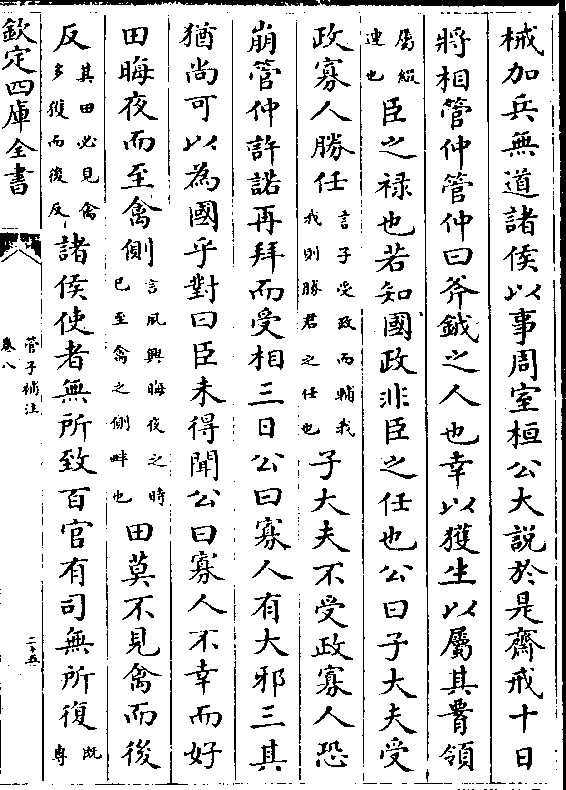 械加兵無道諸侯以事周室桓公大説於是齋戒十日
將相管仲管仲曰斧鉞之人也幸以獲生以屬其𦝫領
屬綴
連也
臣之禄也若知國政非臣之任也公曰子大夫受
政寡人勝任
言子受政而輔我
我則勝君之任也
子大夫不受政寡人恐
崩管仲許諾再拜而受相三日公曰寡人有大邪三其
猶尚可以為國乎對曰臣未得聞公曰寡人不幸而好
田晦夜而至禽側
言風興晦夜之時
已至禽之側畔也
田莫不見禽而後
反
其田必見禽
多獲而後反
諸侯使者無所致百官有司無所復
既
專
欽定四庫全書
管子補注
卷八
二十五